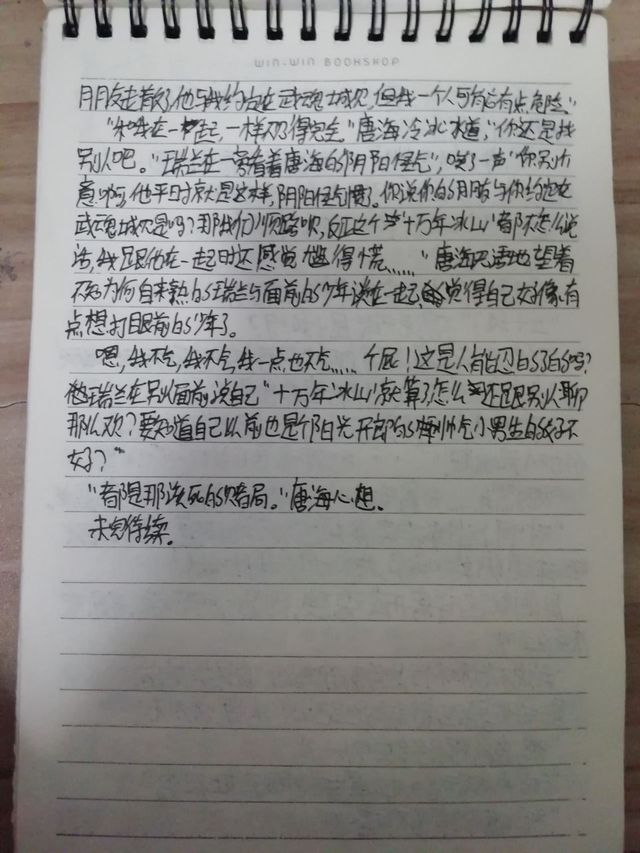 WIN-WIN BOOKSHOP
朋友走散了,他与我约定在武魂城见,但我一个人可能有点危险"
"和我在一起,一样不得完全。"唐海冷冰冰道,"你还是找
别人吧。"瑞兰在一旁看着唐海的阴阳怪气,笑了一声"你别介
意啊,他平日就是这样,阴阳怪气惯了。你说你的朋友与你约定在
武魂城见是吗?那我们顺路呗,反正这个"十万年冰山"都不怎么说
话,我跟他在一起时还感觉尴得慌……"唐海无语地望着
不知为何自来熟的瑞兰与面前的少年谈在一起,觉得自己好像有
点想打眼前的少年了。
嗯,我不气,我不气,我一点也不气……个屁!这是人能忍的了的吗?
他瑞兰在别人面前说自己"十万年冰山"就算了,怎么还跟别人聊
那么欢?要知道自己以前也是个阳光开郎的帅气小男生的好不
好?"
"都是那该死的赌局。"唐海心想。
未完待续。